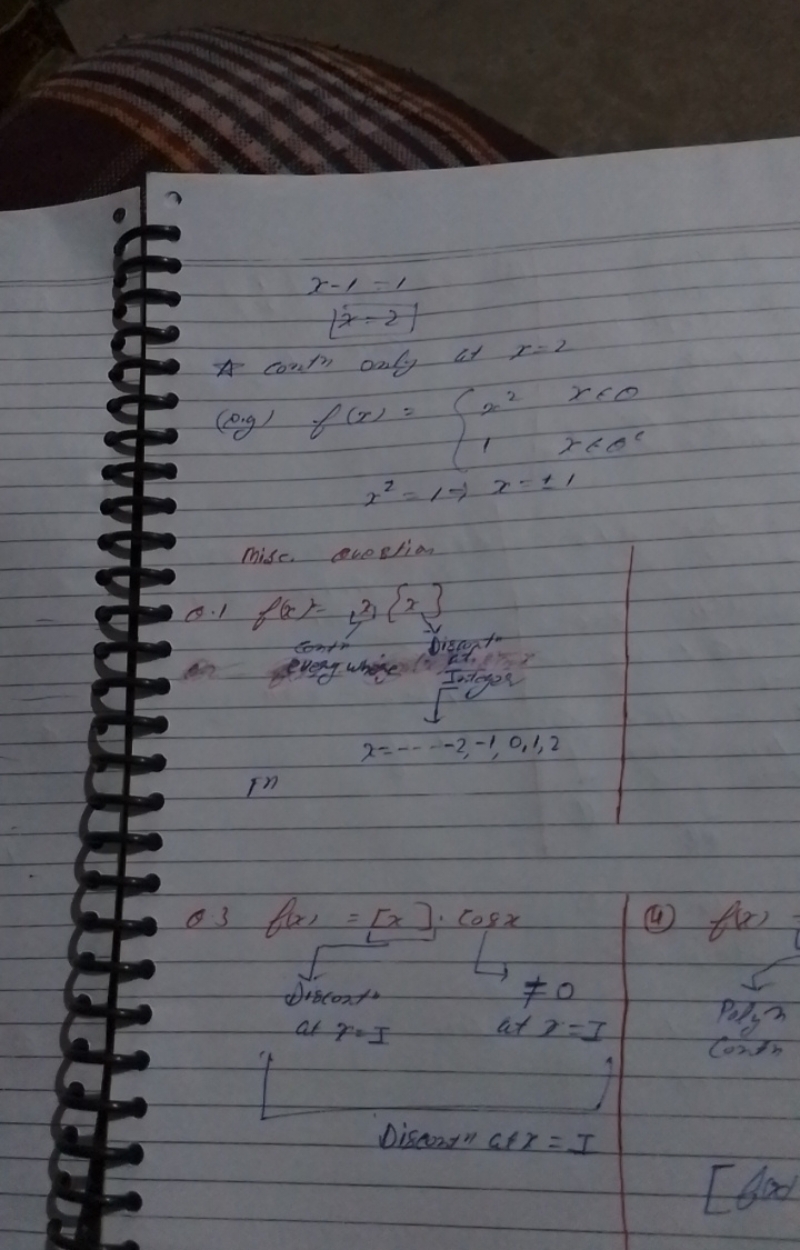 x-1 = 1
x=2
☆ contn only at x=2
(e.g) f(x) = { x² x∈Q
1 x∈Qᶜ
x² = 1 ⇒ x = ±1
Misc. Question
Q.1 f(x) = x {x}
contn everywhere
Discontn at Integer
x = ---- -2, -1, 0, 1, 2
Q.3 f(x) = [x] . cosx
Discontn at x=I
≠ 0 at x=I
Discontn at x = I
(4) f(x)
Polyn
Contn
[ f(x)